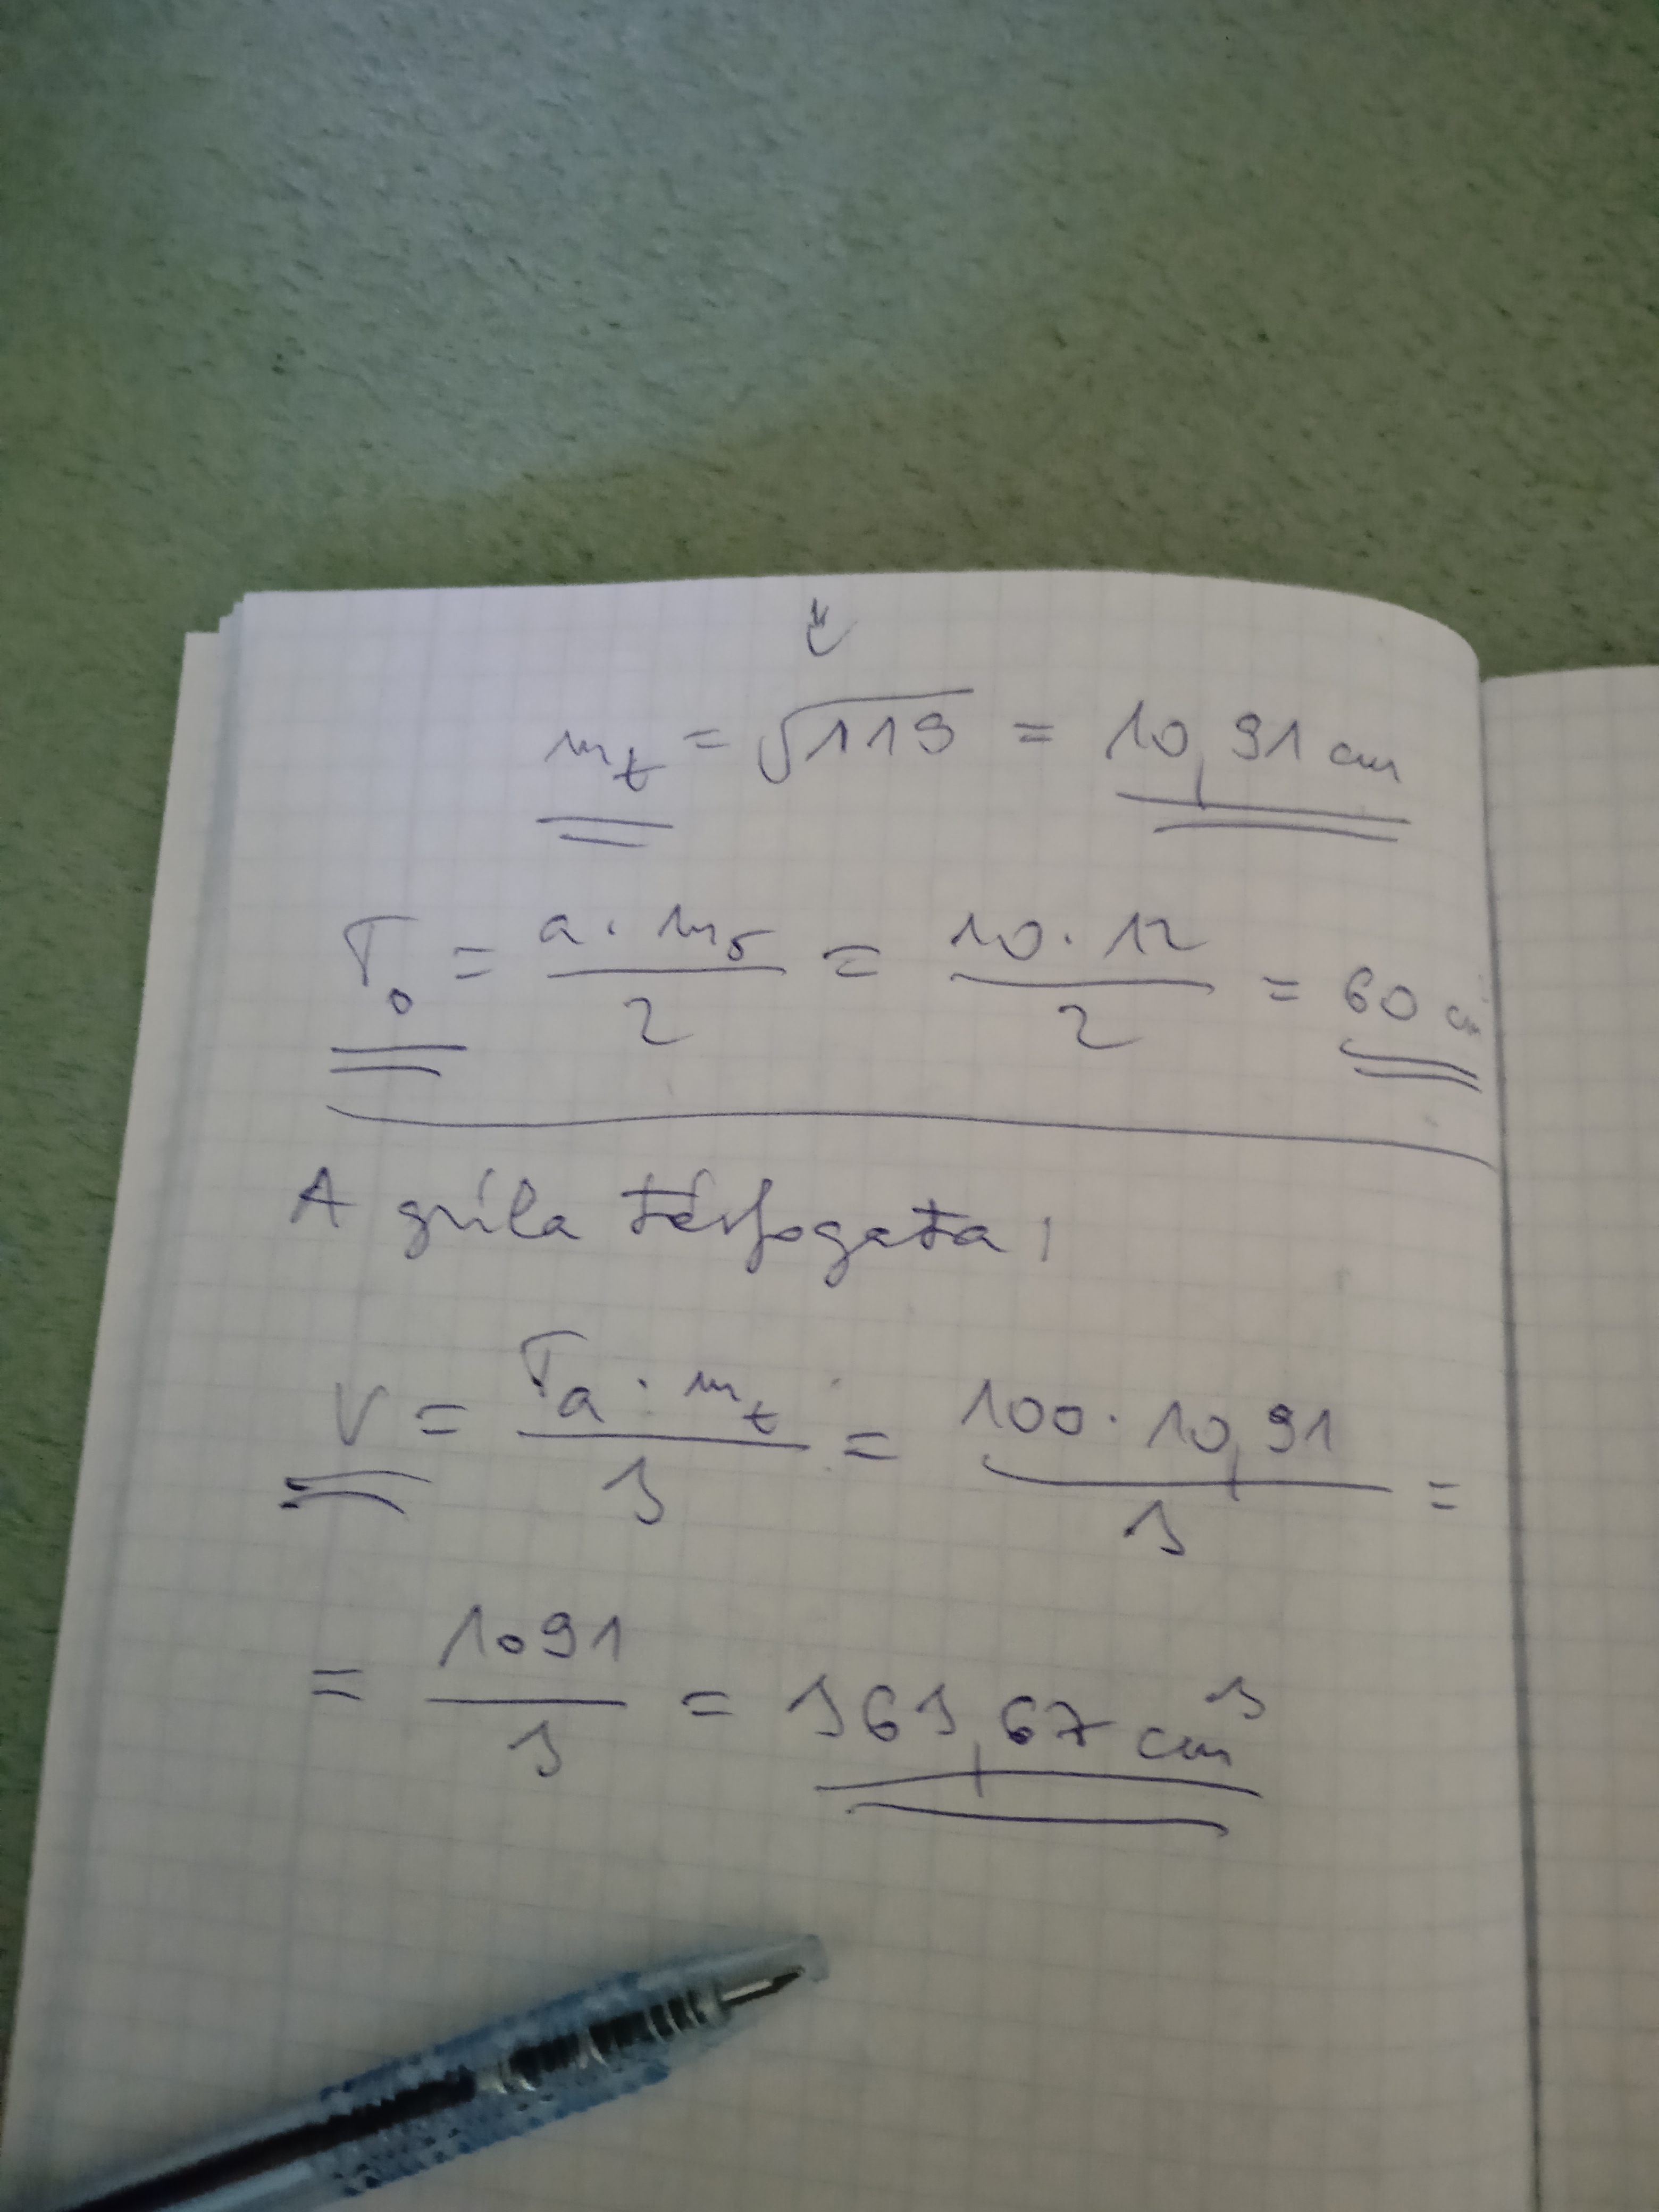 m_t = √119 = 10,91 cm
T_o = a · m_o / 2 = 10 · 12 / 2 = 60 cm
A gúla térfogata:
V = T_a · m_t / 3 = 100 · 10,91 / 3 =
= 1091 / 3 = 363,67 cm³